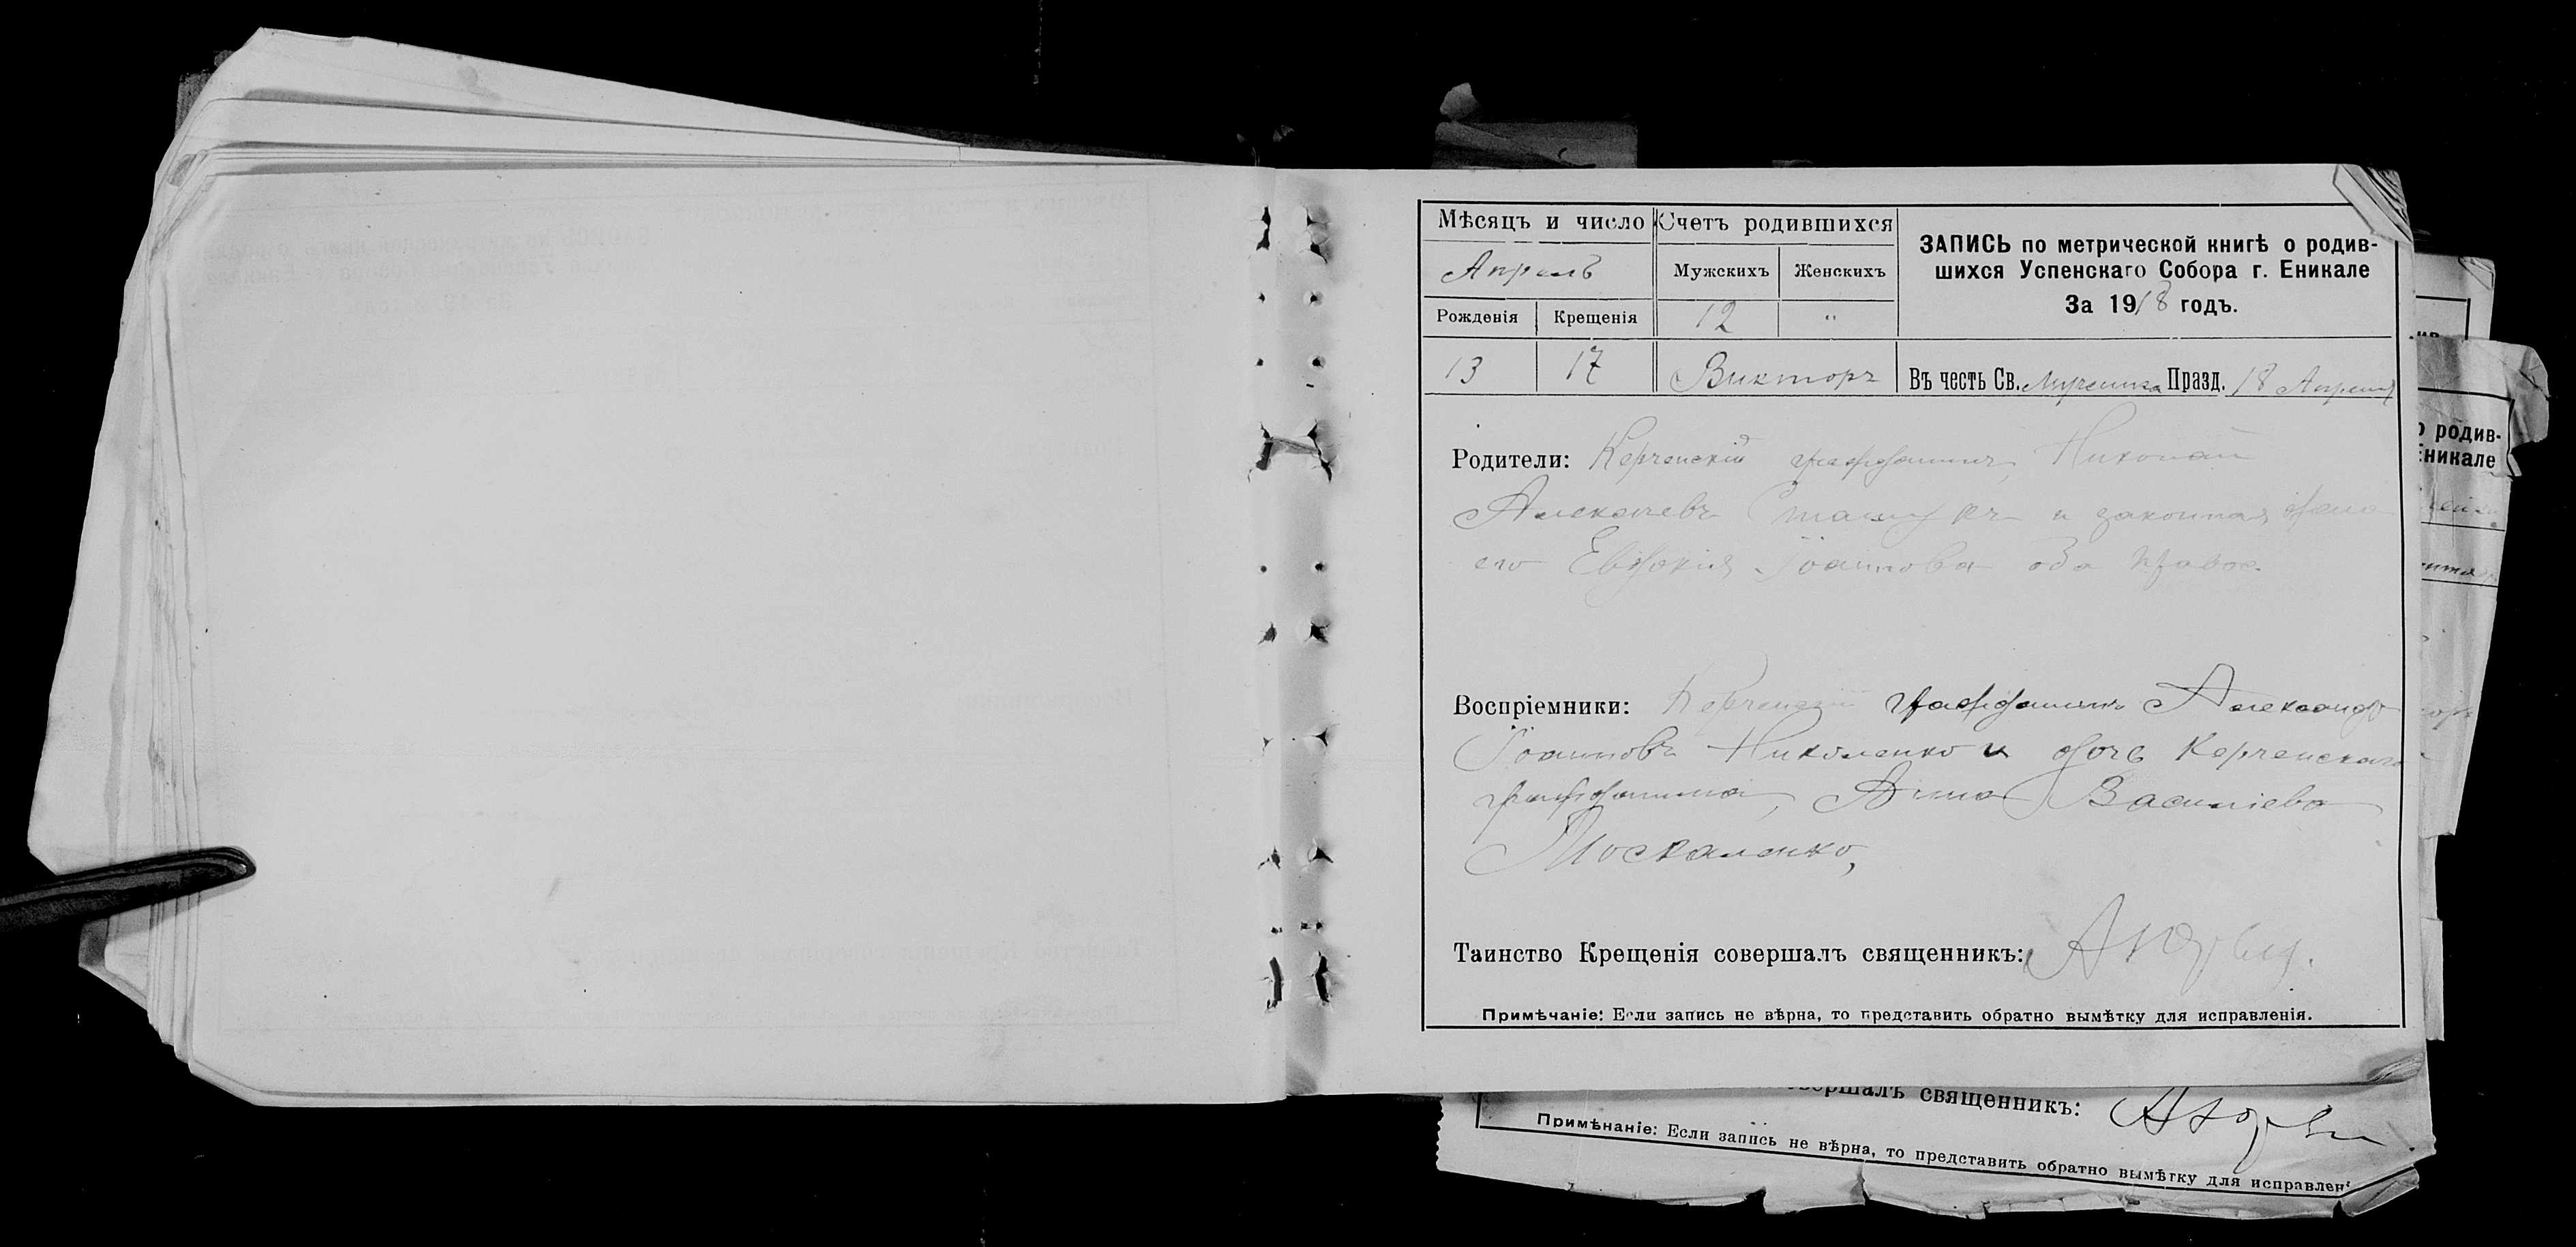 Мѣсяцъ и число
Счетъ родившихся
ЗАПИСЬ по метрической книгѣ о родив-
шихся Успенскаго Собора г. Еникале
За 1918 годъ.
Апрель
Мужскихъ
Женскихъ
Рожденія
Крещенія
12
"
13
17
Викторъ
Въ честь Св. Мученика Празд. 18 Апреля
Родители: Керченскій гражданинъ, Николай
Алексѣевъ и законная жена
его Евдокія Іоаннова оба правос.
Воспріемники: Керченскій гражданинъ Александръ
Іоанновъ Николенко и дочь Керченскаго
гражданина, Анна Василіева
Москаленко,
Таинство Крещенія совершалъ священникъ:
Примѣчаніе: Если запись не вѣрна, то представить обратно вымѣтку для исправленія.
о родив-
Еникале
совершалъ священникъ:
Примѣнаніе: Если запись не вѣрна, то представить обратно вымѣтку для исправлен